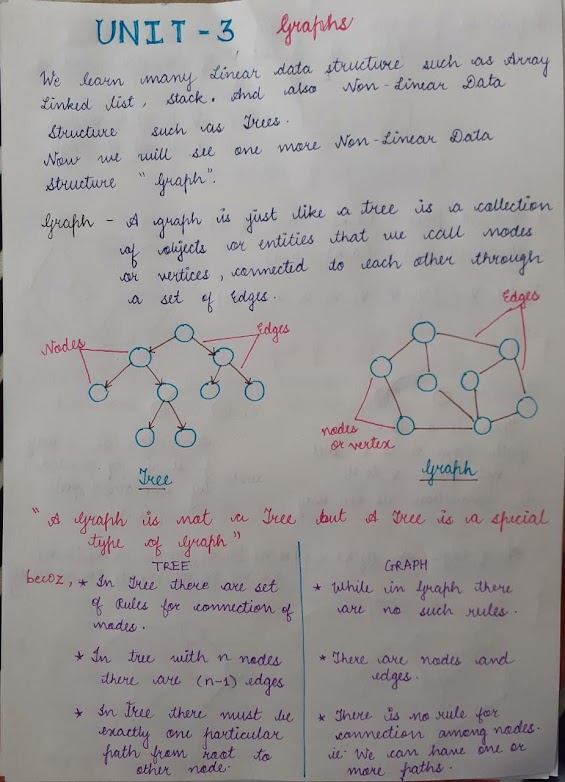 UNIT - 3 Graphs
We learn many Linear data structure such as Array
Linked list, Stack. And also Non-Linear Data
Structure such as Trees.
Now we will see one more Non-Linear Data
Structure "Graph".
Graph - A graph is just like a tree is a collection
of objects or entities that we call nodes
or vertices, connected to each other through
a set of Edges.
Nodes
Edges
Tree
Edges
nodes
or vertex
Graph
"A Graph is not a Tree but A Tree is a special
type of Graph"
becoz,
TREE
* In Tree there are set
of Rules for connection of
nodes.
* In tree with n nodes
there are (n-1) edges
* In Tree there must be
exactly one particular
path from root to
other node.
GRAPH
* While in Graph there
are no such rules.
* There are nodes and
edges.
* There is no rule for
connection among nodes.
ie. We can have one or
more paths.